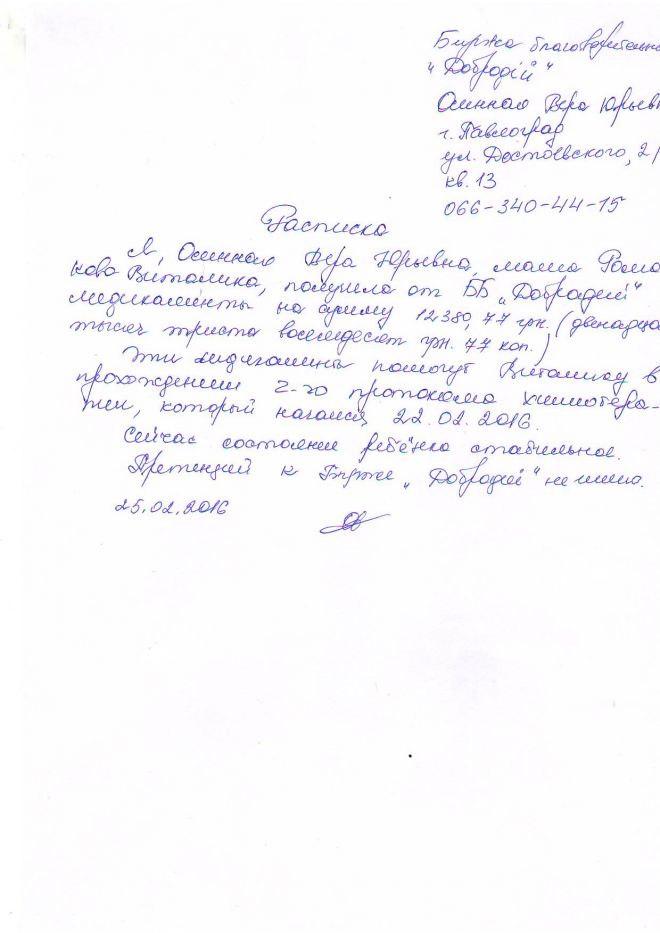 Биржа благотворительно
"Добродій"
Осинная Вера Юрьевн
г. Павлоград
ул. Достоевского, 2/
кв. 13
066-340-44-15
Расписка
Я, Осинная Вера Юрьевна, мама Рома-
кова Виталика, получила от ББ "Добродий"
медикаменты на сумму 12380,77 грн. (двенадца
тысяч триста восемдесят грн. 77 коп.)
Эти медикаменты помогут Виталику в
прохождении 2-го протокола химиотера-
пии, который начался 22.02.2016.
Сейчас состояние ребёнка стабильное.
Претензий к Бирже "Добродий" не имею.
25.02.2016